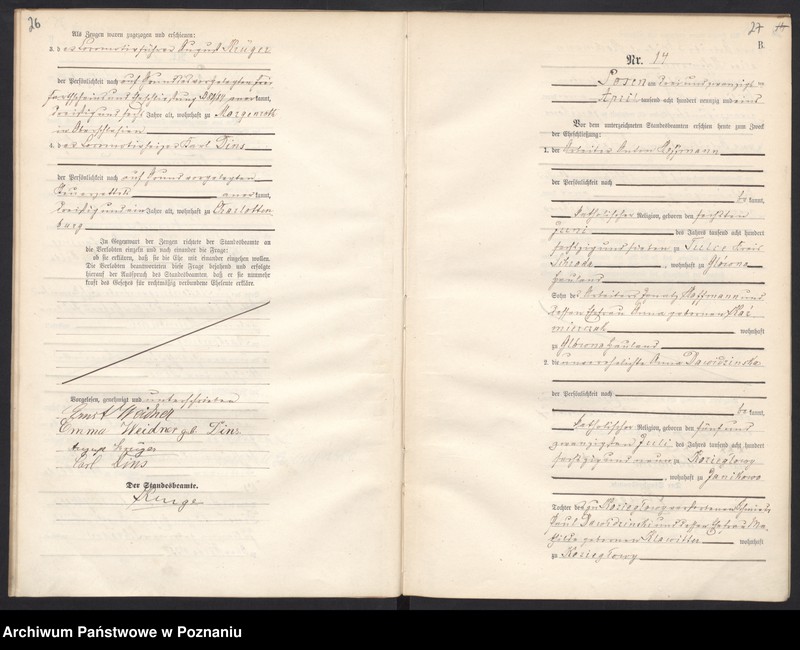 26
Als Zeugen waren zugezogen und erschienen:
3. der Locomotivführer August Krüger
der Persönlichkeit nach auf Grund
kannt,
Jahr alt, wohnhaft zu Morgenroth
in Oberschlesien
4. der Locomotivheizer Karl Dins
der Persönlichkeit nach auf Grund vorgelegten
Steuerzettels anerkannt,
dreißig und ein Jahre alt, wohnhaft zu Charlotten
burg
In Gegenwart der Zeugen richtete der Standesbeamte an
die Verlobten einzeln und nach einander die Frage:
ob sie erklären, daß sie die Ehe mit einander eingehen wollen.
Die Verlobten beantworteten diese Frage bejahend und erfolgte
hierauf der Ausspruch des Standesbeamten, daß er sie nunmehr
kraft des Gesetzes für rechtmäßig verbundene Eheleute erkläre.
Vorgelesen, genehmigt und unterschrieben
Ernst Weidner
Emma Weidner geb. Dins
August Krüger
Carl Dins
Der Standesbeamte.
27
B.
Nr. 14
Posen am drei und zwanzigsten
April tausend acht hundert neunzig und eins
Vor dem unterzeichneten Standesbeamten erschien heute zum Zweck
der Eheschließung:
1. der Arbeiter Anton Hoffmann
der Persönlichkeit nach
be kannt,
katholischer Religion, geboren den sechsten
Juni des Jahres tausend acht hundert
sechzig und sieben zu Tulce Kreis
Schroda, wohnhaft zu Glowno
Hauland
Sohn des Arbeiters Ignatz Hoffmann und
dessen Ehefrau Anna geborenen Kaz
mierczak wohnhaft
zu Glowno Hauland
2. die unverehelichte Anna Dawidzinska
der Persönlichkeit nach
be kannt,
katholischer Religion, geboren den fünf und
zwanzigsten Juli des Jahres tausend acht hundert
sechzig und neun zu Kozieglowy
, wohnhaft zu Janikowo
Tochter des zu Kozieglowy verstorbenen Schmieds
Paul Dawidzinski und dessen Ehefrau Ma
thilde geborenen Klawitter wohnhaft
zu Kozieglowy
Archiwum Państwowe w Poznaniu